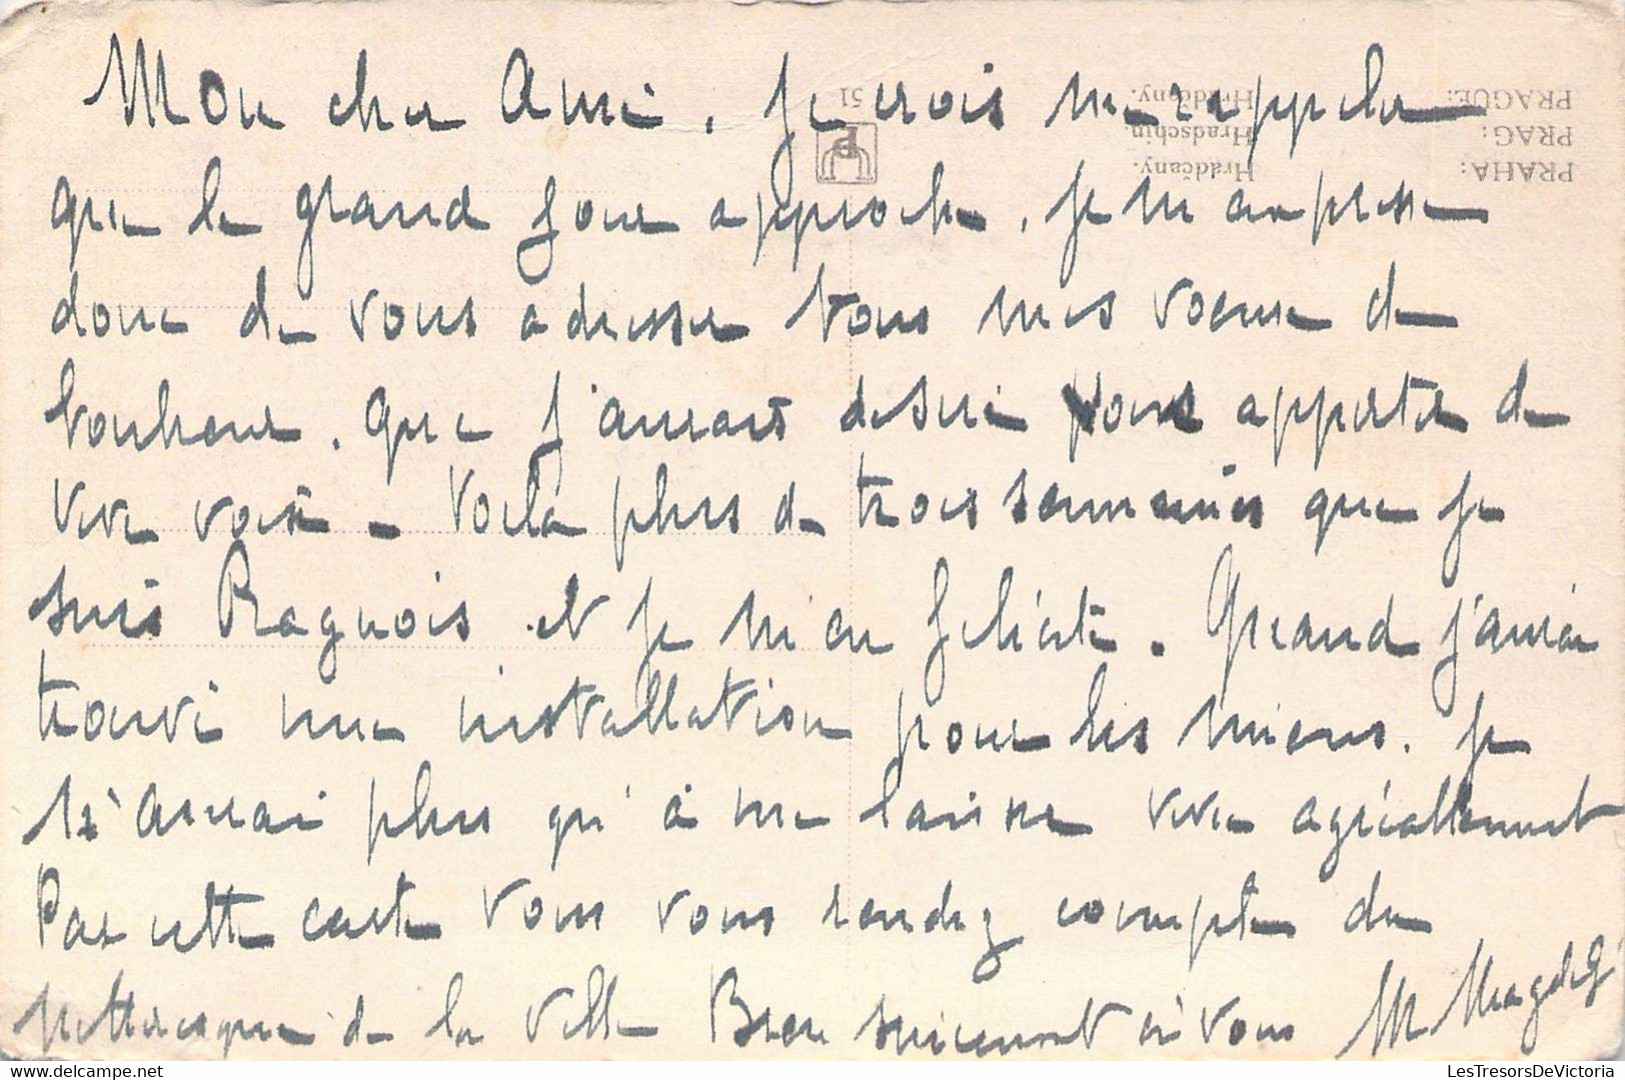 Mon cher Ami. Je crois me rappeler
que le grand jour approche, je m'empresse
donc de vous adresser tous mes voeux de
bonheur. Que j'aurais désiré vous apporter de
vive voix – Voilà plus de trois semaines que je
suis Praguois et je m'en félicite. Quand j'aurai
trouvé une installation pour les miens. Je
n'aurai plus qu'à me laisser vivre agréablement
Par cette carte vous vous rendez compte du
pittoresque de la ville Bien sincèrement à vous
PRAHA: Hrádčany.
PRAG: Hradschin.
PRAGUE: Hradčany.
51
LesTresorsDeVictoria